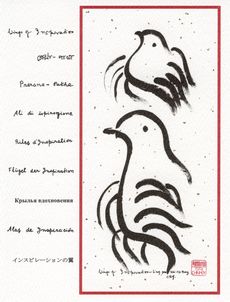 Wings of Inspiration
Prerana - Pakha
Ali di ispirazione
Ailes d'Inspiration
Flügel der Inspiration
Крылья вдохновения
Alas de Inspiración
インスピレーションの翼
Wings of Inspiration